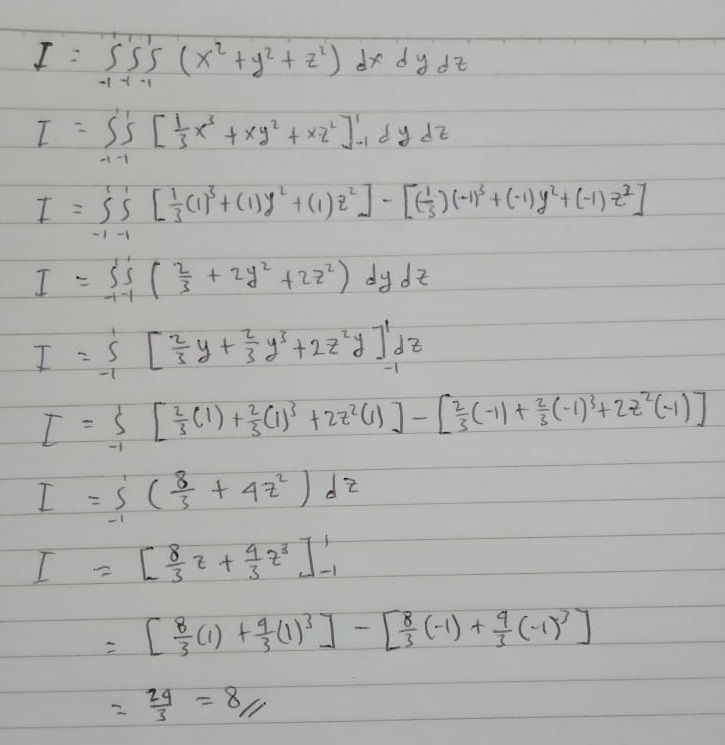 I = ∫₋₁¹ ∫₋₁¹ ∫₋₁¹ (x² + y² + z²) dx dy dz
I = ∫₋₁¹ ∫₋₁¹ [⅓x³ + xy² + xz²]₋₁¹ dy dz
I = ∫₋₁¹ ∫₋₁¹ [⅓(1)³ + (1)y² + (1)z²] - [(⅓)(-1)³ + (-1)y² + (-1)z²]
I = ∫₋₁¹ ∫₋₁¹ (⅔ + 2y² + 2z²) dy dz
I = ∫₋₁¹ [⅔y + ⅔y³ + 2z²y]₋₁¹ dz
I = ∫₋₁¹ [⅔(1) + ⅔(1)³ + 2z²(1)] - [⅔(-1) + ⅔(-1)³ + 2z²(-1)]
I = ∫₋₁¹ (8/3 + 4z²) dz
I = [8/3 z + 4/3 z³]₋₁¹
= [8/3 (1) + 4/3 (1)³] - [8/3 (-1) + 4/3 (-1)³]
= 24/3 = 8//